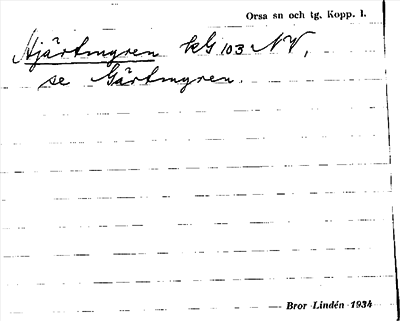 Orsa sn och tg, Kopp. l.
Hjärtmyren kG 103 NV,
se Gärtmyren.
Bror Lindén 1934